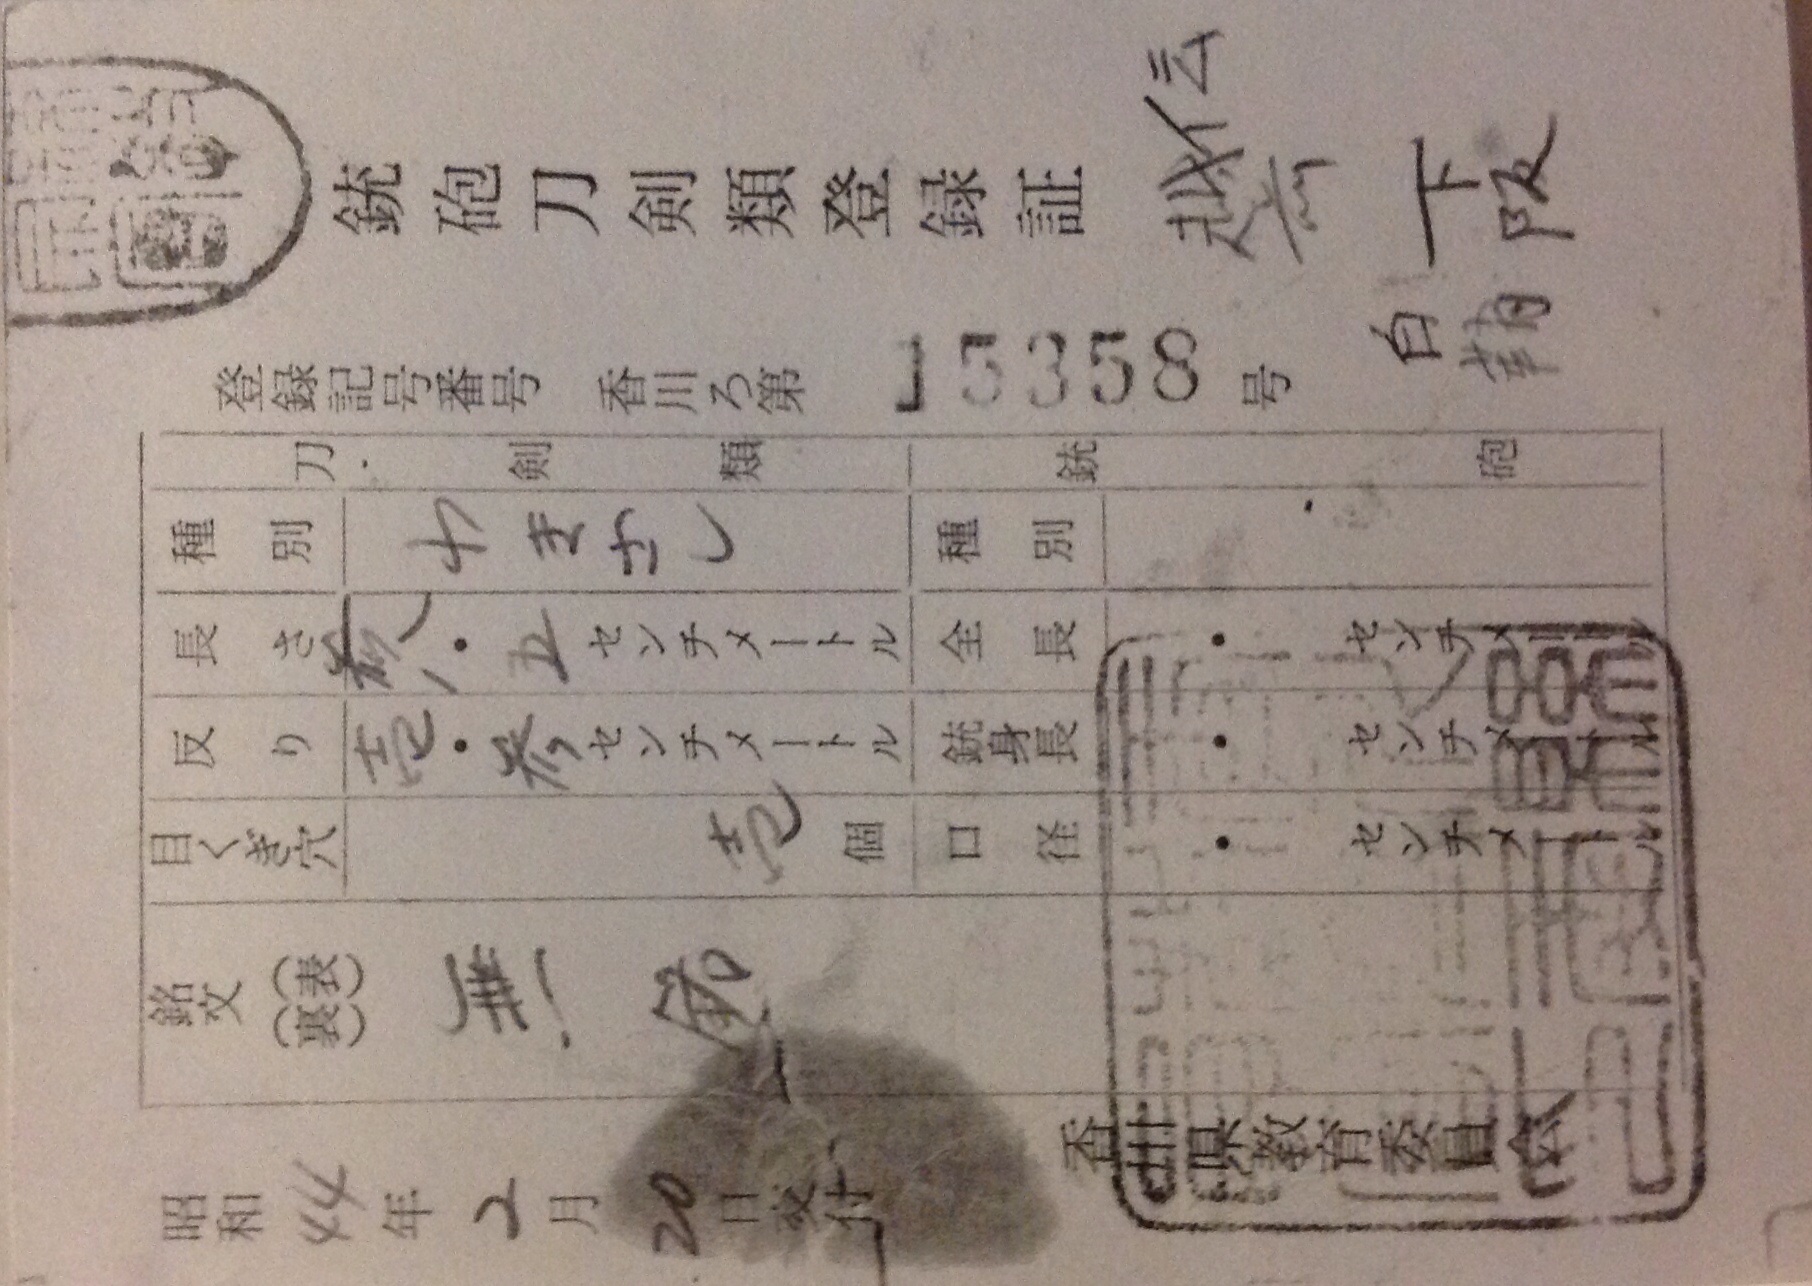 銃砲刀剣類登録証
伝
越前
下阪
白鞘
登録記号番号 香川ろ第 15358 号
刀剣類 銃砲
種別 わきざし 種別
長さ ・五センチメートル 全長 ・ センチメートル
反り 壱・参センチメートル 銃身長 ・ センチメートル
目くぎ穴 壱個 口径 ・ センチメートル
銘文 (表)(裏) 無銘
昭和44年2月20日交付
香川県教育委員会